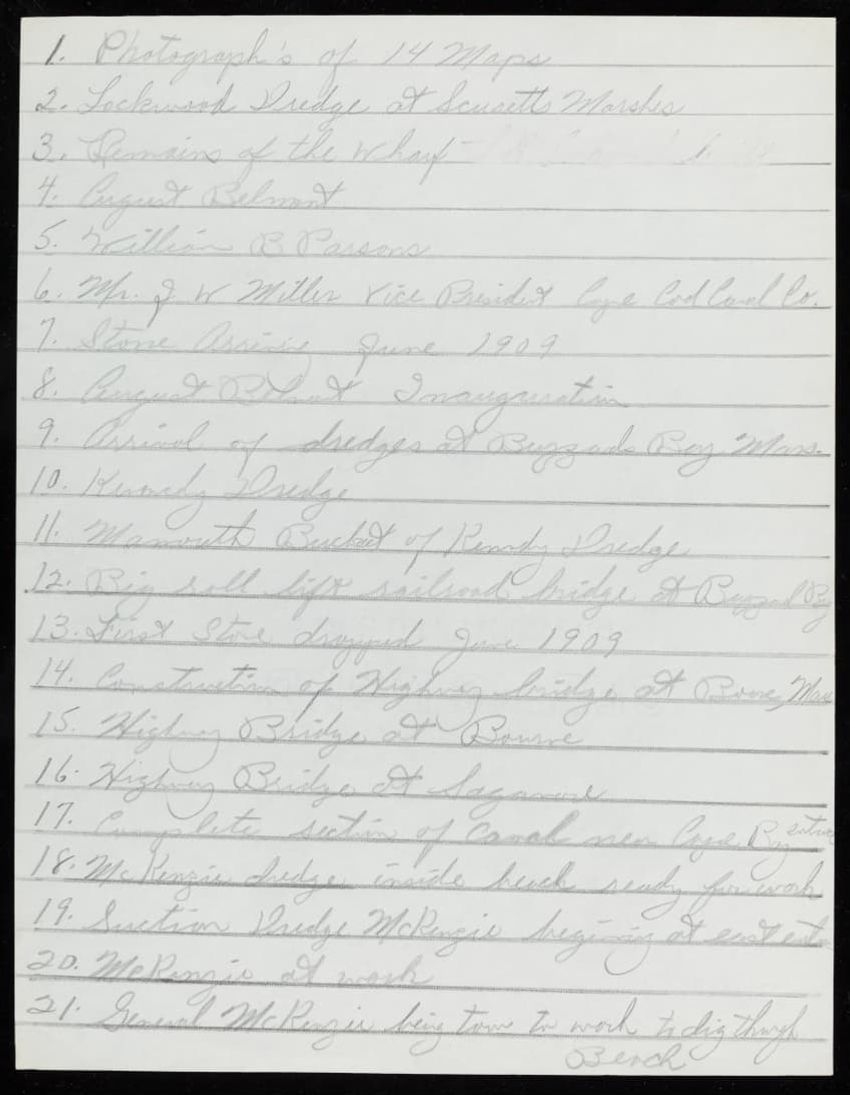 1. Photograph's of 14 Maps
2. Lockwood Dredge at Scusetts Marshes
3. Remains of the Wharf -
4. August Belmont
5. William B Parsons
6. Mr. J W Miller Vice President Cape Cod Canal Co.
7. Stone Arriving June 1909
8. August Belmont Inauguration
9. Arrival of dredges at Buzzards Bay Mass.
10. Kennedy Dredge
11. Mamouth Bucket of Kennedy Dredge
12. Big roll lift railroad bridge at Buzzard Bay
13. First Stone dropped June 1909
14. Construction of Highway bridge at Bourne, Mass
15. Highway Bridge at Bourne
16. Highway Bridge at Sagamore
17. Complete section of Canal near Cape Bay
18. McKenzie dredge inside beach ready for work
19. Suction Dredge McKenzie begining at east
20. McKenzie at work
21. General McKenzie being tow to work to dig though
Beach